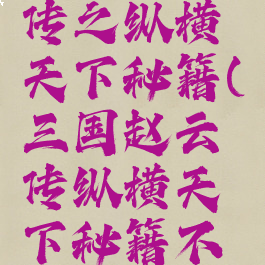 传之纵横
天下秘籍(
三国赵云
传纵横天
下秘籍不